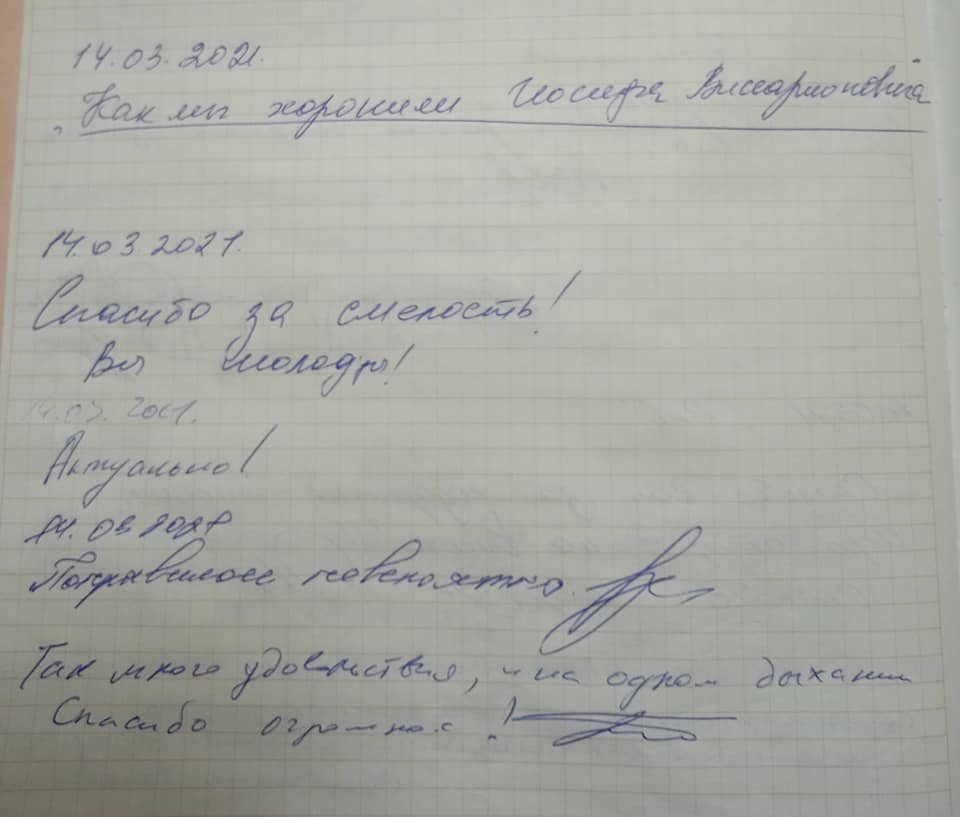 14.03.2021.
„Как мы хоронили Иосифа Виссарионовича"
14.03 2021.
Спасибо за смелость!
Вы молодцы!
14.03.2021.
Актуально!
14.03 2021
Понравилось невероятно.
Так много удовольствия, и на одном дыхании
Спасибо огромное!